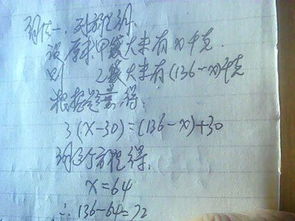 解法一:列方程解.
设原来甲袋大米有x千克
则 乙袋大米有(136-x)千克
根据题意得:
3(x-30)=(136-x)+30
解方程得:
x=64
∴136-64=72